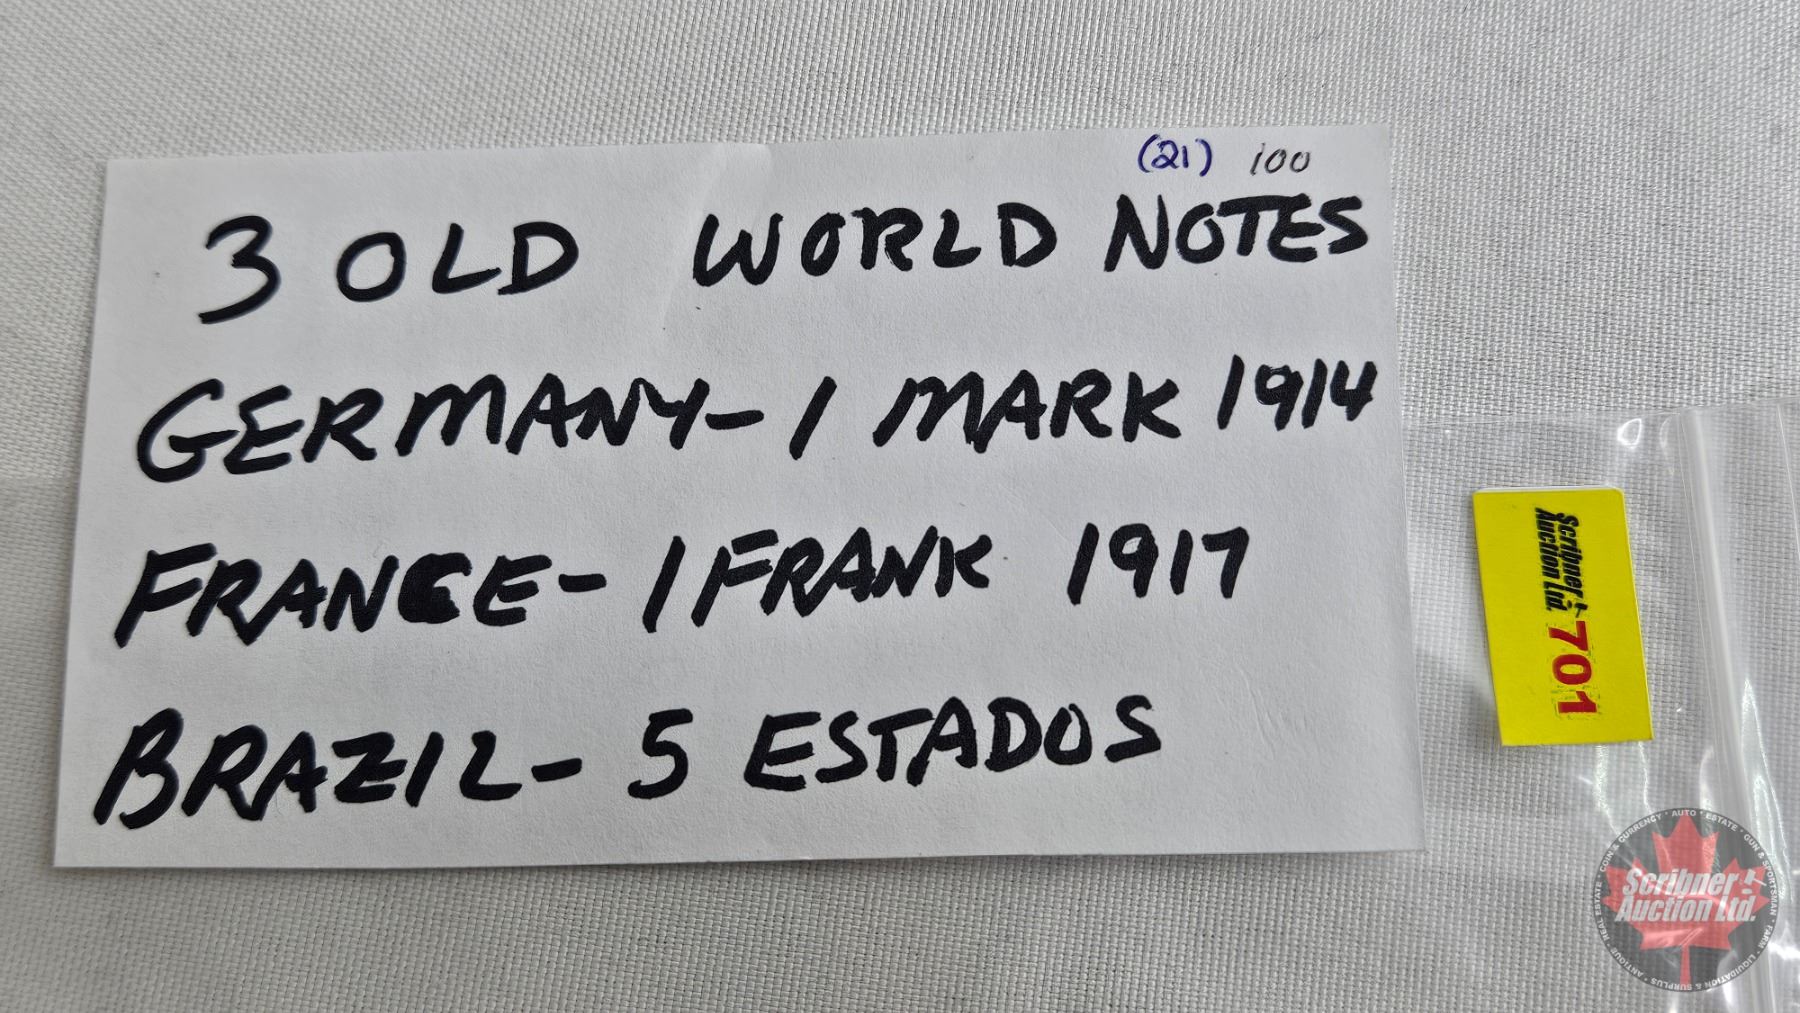 (21) 100
3 OLD WORLD NOTES
GERMANY-1 MARK 1914
FRANCE-1 FRANK 1917
BRAZIL-5 ESTADOS
Scribner
Auction Ltd.
701
COIN & CURRENCY • AUTO • ESTATE • GUN & SPORTSMAN • FARM • LIQUIDATION & SURPLUS • ANTIQUE • REAL ESTATE
Scribner
Auction Ltd.